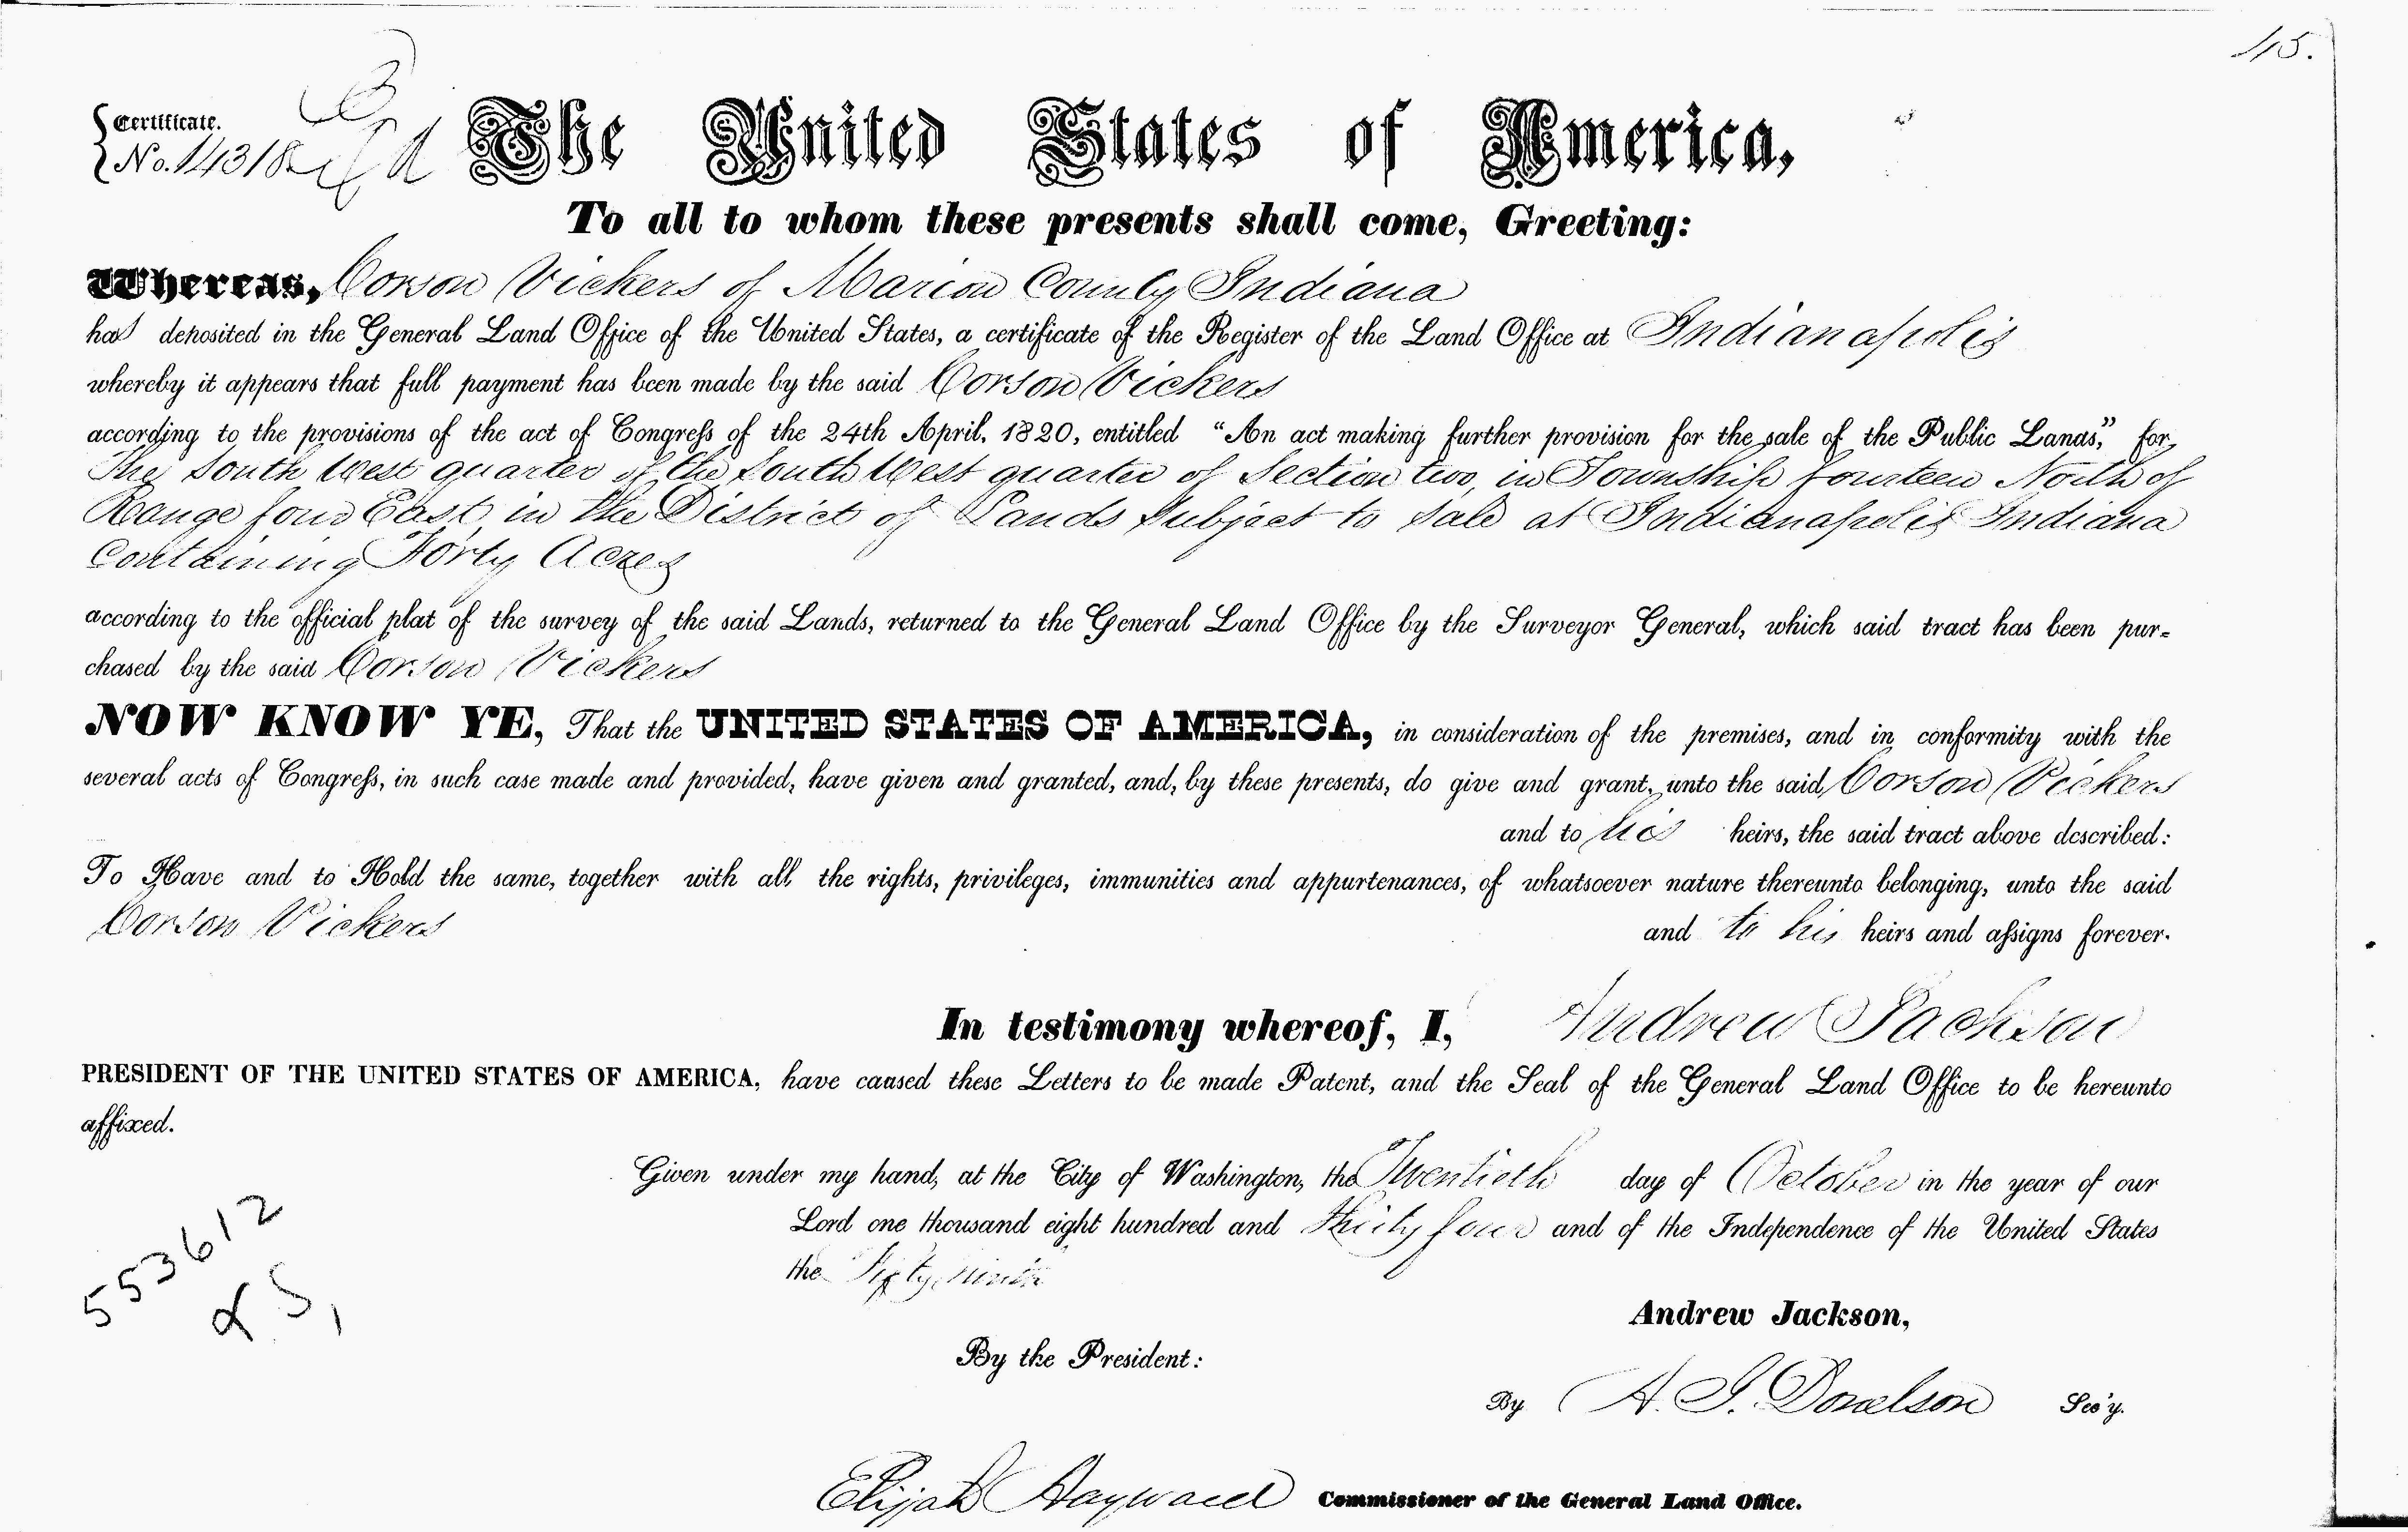 45.
Certificate.
No. 14318
The United States of America,
To all to whom these presents shall come, Greeting:
Whereas, Corson Vickers of Marion County Indiana
has deposited in the General Land Office of the United States, a certificate of the Register of the Land Office at Indianapolis
whereby it appears that full payment has been made by the said Corson Vickers
according to the provisions of the act of Congress of the 24th April, 1820, entitled “An act making further provision for the sale of the Public Lands,” for
The South West quarter of the South West quarter of Section two, in Township fourteen North of
Range four East, in the District of Lands Subject to Sale at Indianapolis Indiana
Containing Forty Acres
according to the official plat of the survey of the said Lands, returned to the General Land Office by the Surveyor General, which said tract has been pur=
chased by the said Corson Vickers
NOW KNOW YE, That the UNITED STATES OF AMERICA, in consideration of the premises, and in conformity with the
several acts of Congress, in such case made and provided, have given and granted, and, by these presents, do give and grant, unto the said Corson Vickers
and to his heirs, the said tract above described:
To Have and to Hold the same, together with all the rights, privileges, immunities and appurtenances, of whatsoever nature thereunto belonging, unto the said
Corson Vickers and to his heirs and assigns forever.
In testimony whereof, I, Andrew Jackson
PRESIDENT OF THE UNITED STATES OF AMERICA, have caused these Letters to be made Patent, and the Seal of the General Land Office to be hereunto
affixed.
Given under my hand, at the City of Washington, the Twentieth day of October in the year of our
Lord one thousand eight hundred and thirty four and of the Independence of the United States
the Fifty ninth
553612
Andrew Jackson,
By the President:
By A. J. Donelson Sec'y.
Elijah Hayward Commissioner of the General Land Office.